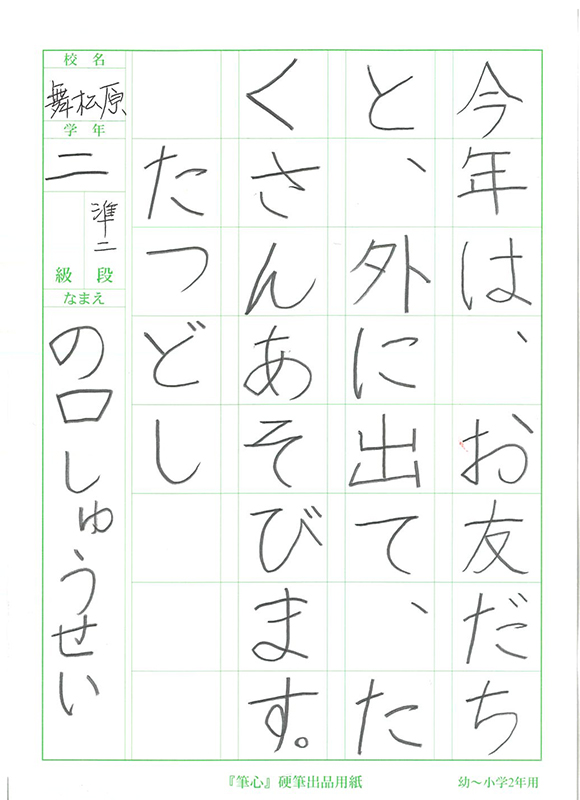 今年は、お友だち
と、外に出て、た
くさんあそびます。
たつどし
校名
舞松原
学年
二
段
準二
級
なまえ
の口しゅうせい
『筆心』硬筆出品用紙
幼〜小学2年用